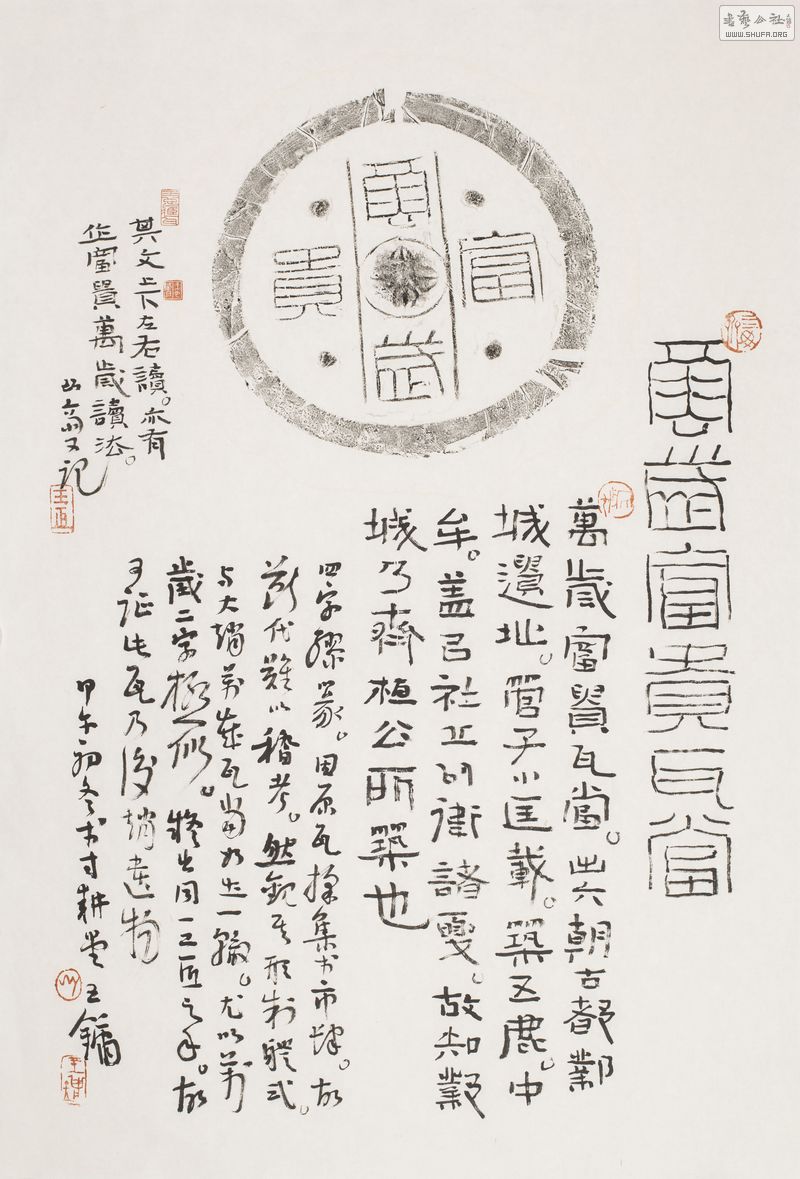 萬歲富貴瓦當
萬歲富貴瓦當。出六朝古都鄴
城遺址。管子小匡載。築五鹿。中
牟。盖与社丘以衛諸夏。故知鄴
城乃齊桓公所築也
四字繆篆。因原瓦採集於市肆。故
斷代難以稽考。然觀其形制體式。
与大趙萬歲瓦當如出一轍。尤以萬
歲二字極似。將出同一工匠之手。故
可証此瓦乃後趙遺物
甲午初冬於寸耕堂王鏞
萬歲富貴
其文上下左右讀。亦有
作富貴萬歲讀法。
山翁又記
書藝公社
WWW.SHUFA.ORG